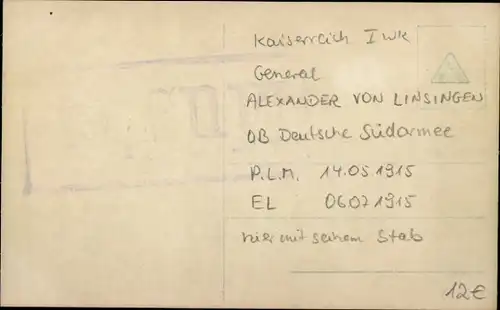 Kaiserreich I WK
General
ALEXANDER VON LINSINGEN
OB Deutsche Südarmee
P.L.M. 14.05 1915
EL 06071915
hier mit seinem Stab
12€